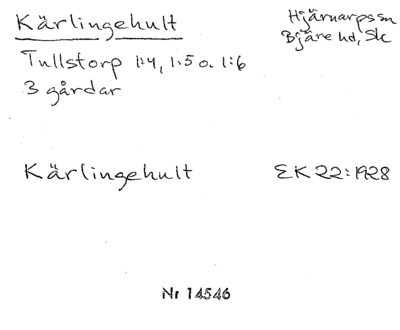 Kärlingehult
Hjärnarps sn
Bjäre hd, Sk
Tullstorp 1:4, 1:5 o. 1:6
3 gårdar
Kärlingehult
EK 22:1928
Nr 14546